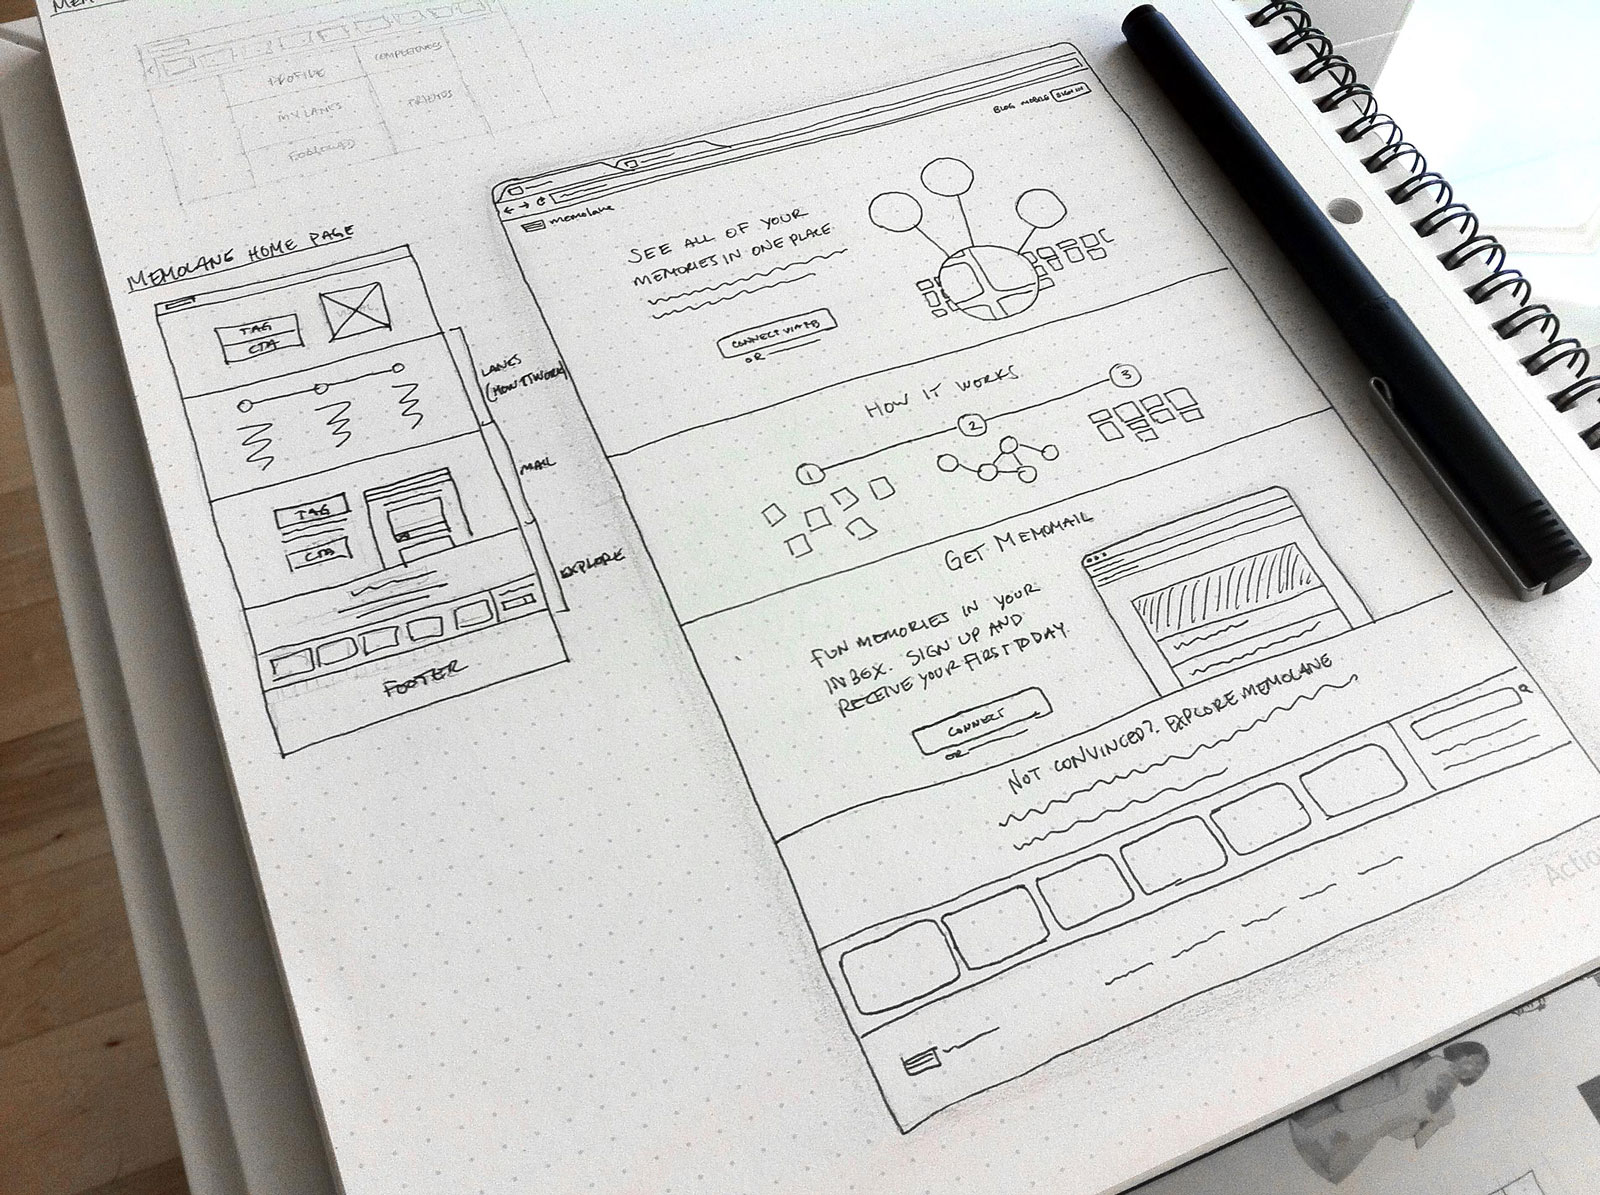 PROFILE
COMPLETENESS
MY LANES
FRIENDS
FOLLOWED
MEMOLANE HOME PAGE
TAG
CTA
LANES
(HOW IT WORKS)
MAIL
TAG
CTA
EXPLORE
FOOTER
memolane
BLOG MOBILE SIGN IN
SEE ALL OF YOUR
MEMORIES IN ONE PLACE.
CONNECT VIA FB
OR
HOW IT WORKS
1
2
3
GET MEMOMAIL
FUN MEMORIES IN YOUR
INBEX. SIGN UP AND
RECEIVE YOUR FIRST TODAY.
CONNECT
OR
NOT CONVINCED?. EXPLORE MEMOLANE
Actio